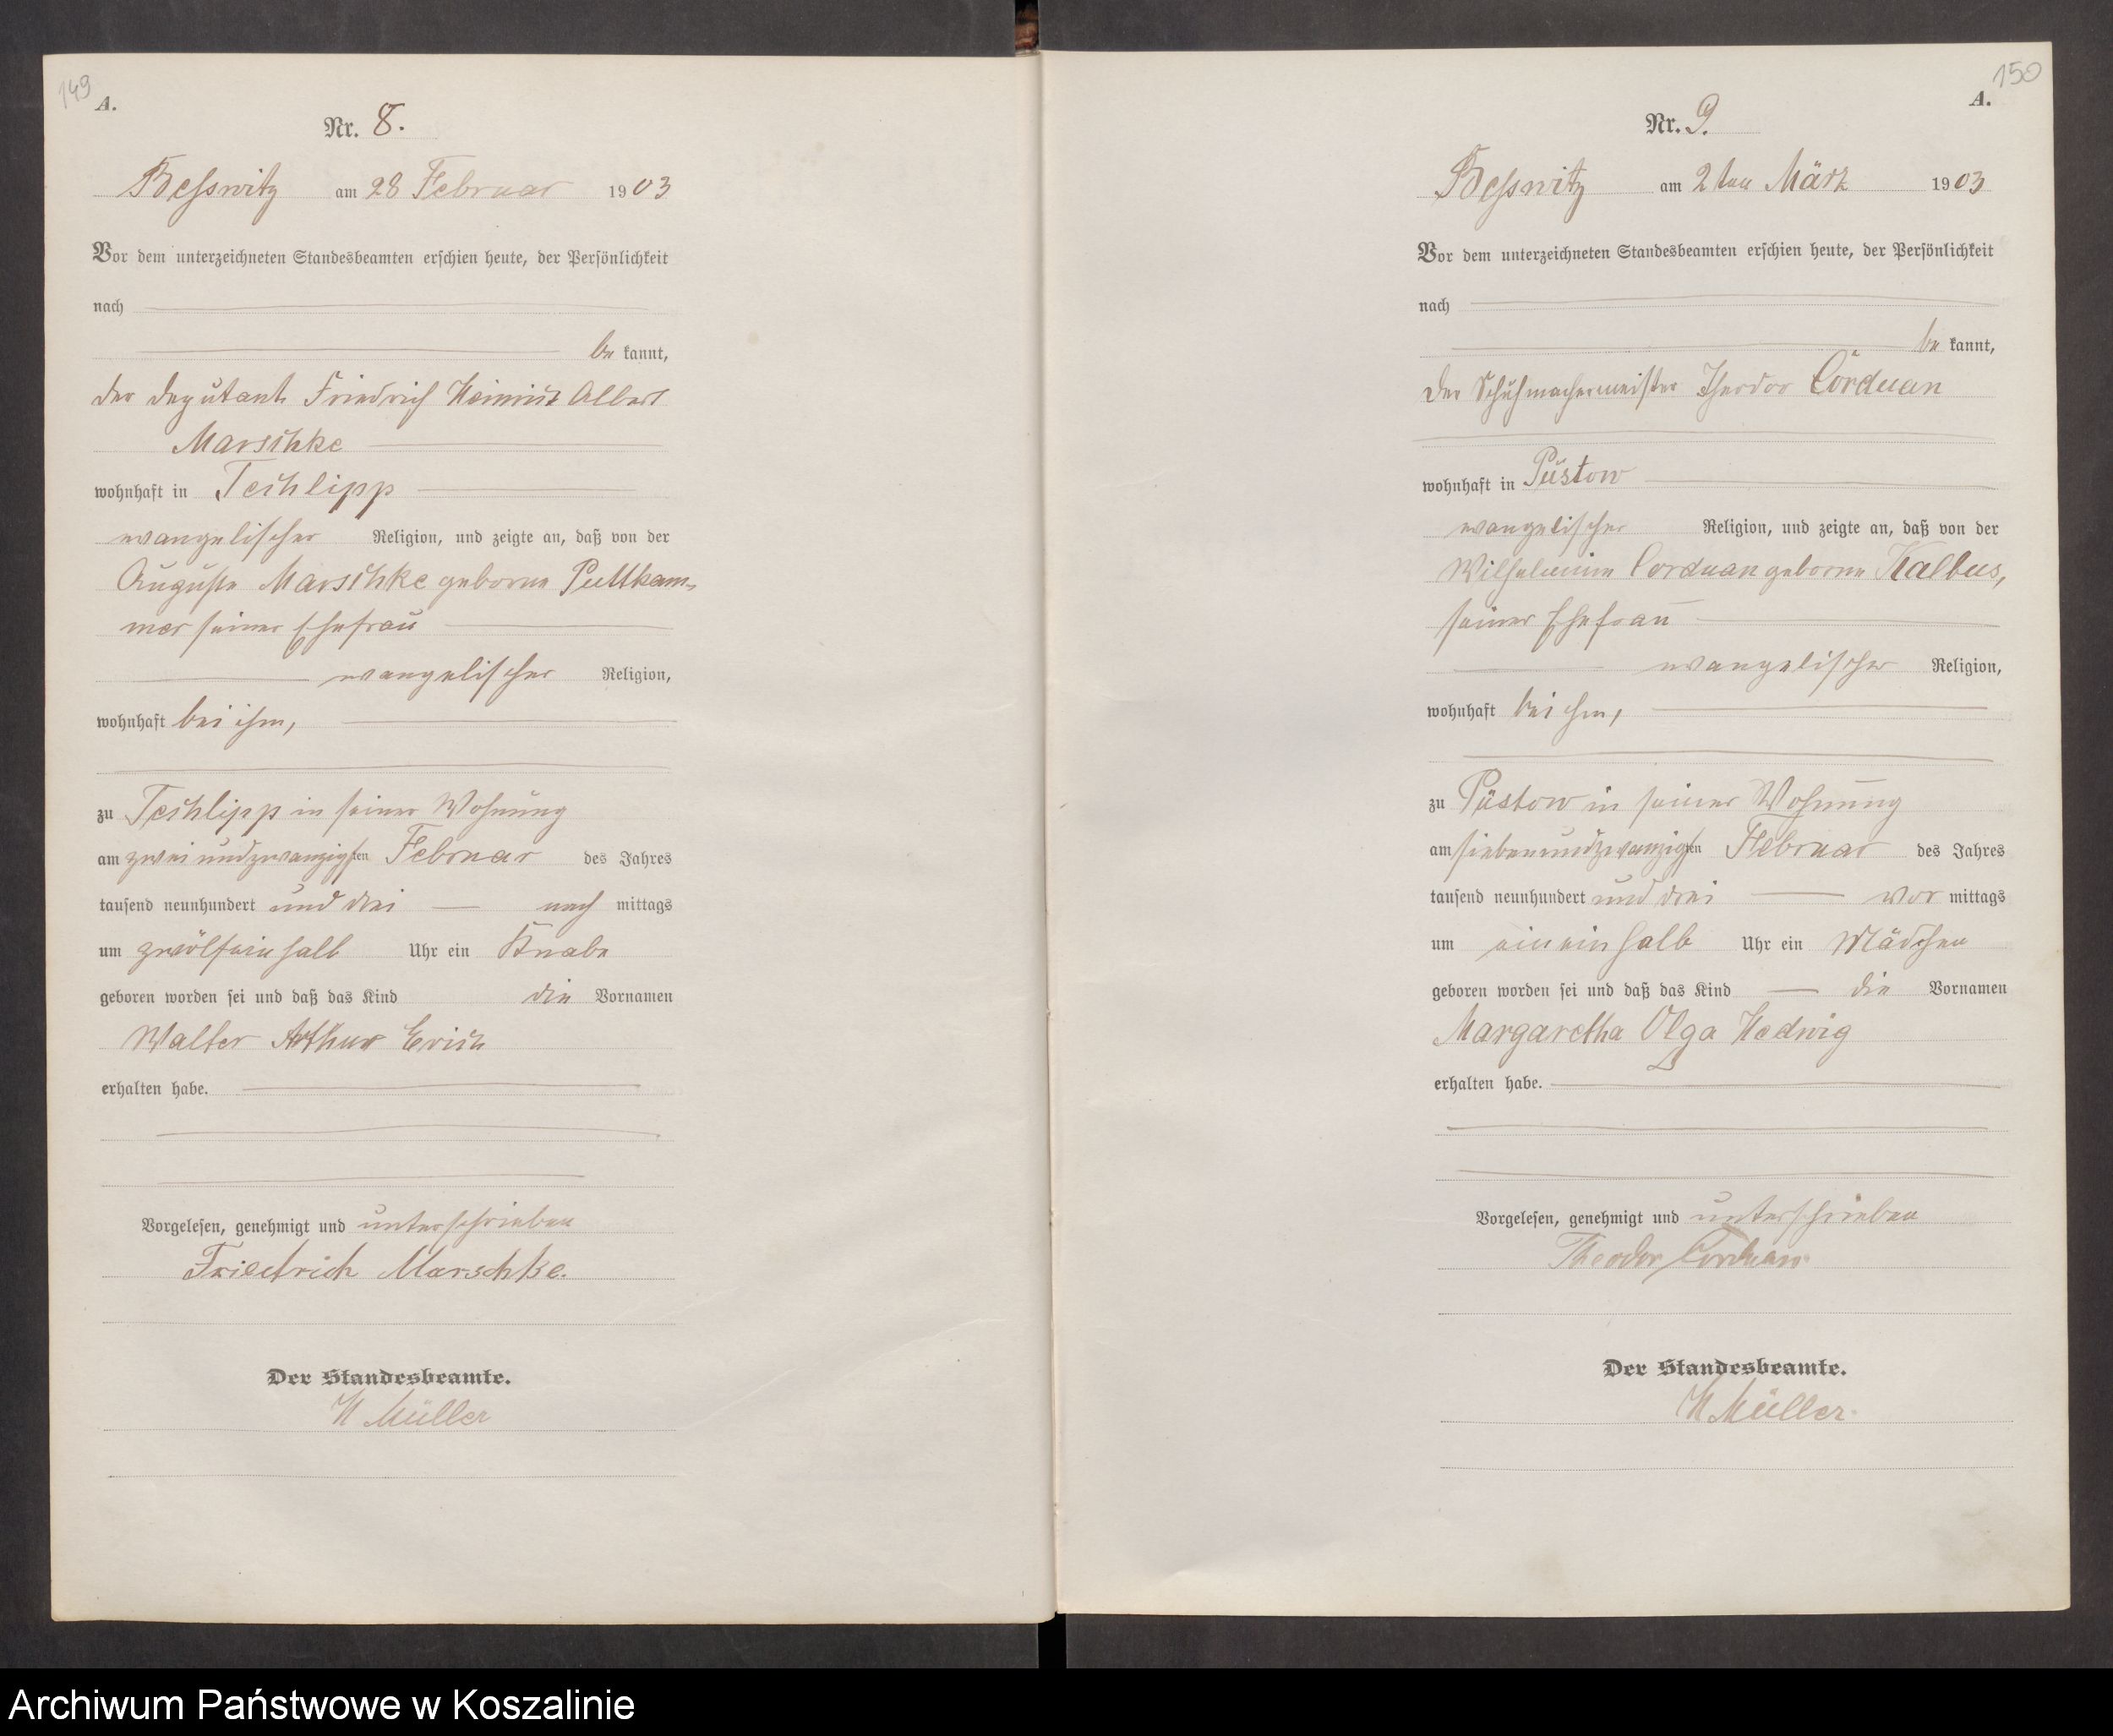 149
A.
Nr. 8.
Beßwitz am 28 Februar 1903
Vor dem unterzeichneten Standesbeamten erschien heute, der Persönlichkeit
nach
be kannt,
der Deputant Friedrich Heinrich Albert
Marschke
wohnhaft in Techlipp
evangelischer Religion, und zeigte an, daß von der
Auguste Marschke geborne Puttkam-
mer seiner Ehefrau
evangelischer Religion,
wohnhaft bei ihm,
zu Techlipp in seiner Wohnung
am zweiundzwanzigsten Februar des Jahres
tausend neunhundert und drei nach mittags
um zwölfeinhalb Uhr ein Knabe
geboren worden sei und daß das Kind die Vornamen
Walter Arthur Erich
erhalten habe.
Vorgelesen, genehmigt und unterschrieben
Friedrich Marschke.
Der Standesbeamte.
H Müller
150
A.
Nr. 9.
Beßwitz am 2ten März 1903
Vor dem unterzeichneten Standesbeamten erschien heute, der Persönlichkeit
nach
be kannt,
der Schuhmachermeister Theodor Corduan
wohnhaft in Püstow
evangelischer Religion, und zeigte an, daß von der
Wilhelmine Corduan geborne Kalbus,
seiner Ehefrau
evangelischer Religion,
wohnhaft bei ihm,
zu Püstow in seiner Wohnung
am siebenundzwanzigsten Februar des Jahres
tausend neunhundert und drei vor mittags
um eineinhalb Uhr ein Mädchen
geboren worden sei und daß das Kind die Vornamen
Margaretha Olga Hedwig
erhalten habe.
Vorgelesen, genehmigt und unterschrieben
Theodor Corduan.
Der Standesbeamte.
H Müller.
Archiwum Państwowe w Koszalinie